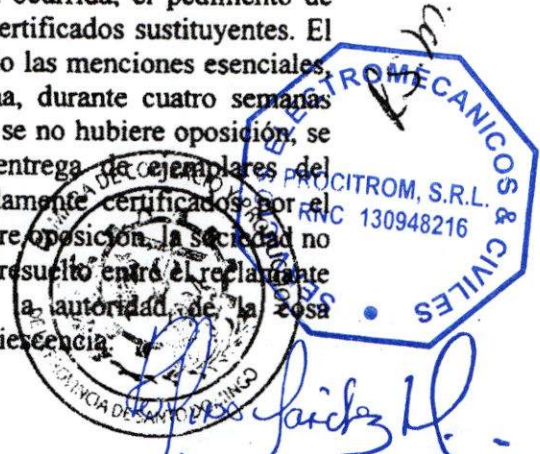 ocurrida, el pedimento de
ertificados sustituyentes. El
o las menciones esenciales,
na, durante cuatro semanas
se no hubiere oposición, se
entrega de ejemplares del
damente certificados por el
re oposición, la sociedad no
resuelto entre el reclamante
a autoridad de la cosa
iescencia.
ELECTROMECANICOS & CIVILES
PROCITROM, S.R.L.
RNC 130948216
DE COMERCIO Y PRODUCCION
PROVINCIA DE SANTO DOMINGO